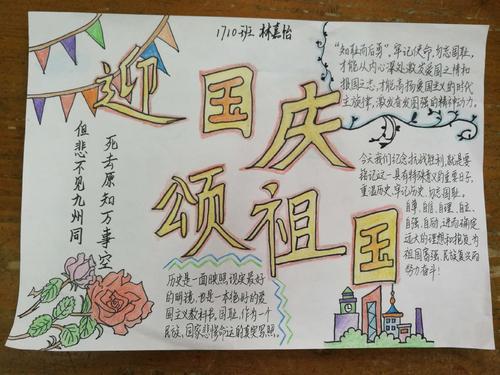 1710班 林嘉怡
迎国庆
颂祖国
死去原知万事空
但悲不见九州同
"知耻而后勇",牢记使命,勿忘国耻,
才能从内心深处激发爱国之情和
报国之志,才能高扬爱国主义的时代
主旋律,激发奋发图强的精神动力。
今天我们纪念抗战胜利,就是要
铭记这一具有特殊意义的重要日子,
重温历史,牢记历史,勿忘国耻。
自尊、自信、自理、自主、
自强、自励,进而确定
远大的理想和抱负,为
祖国富强、民族复兴而
努力奋斗!
历史是一面映照现实最好
的明镜,也是一本绝好的爱
国主义教科书,国耻,作为一个
民族,国家悲惨命运的真实写照。